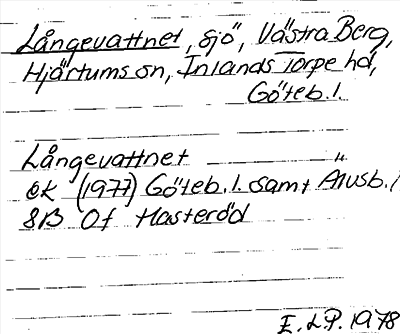 Långevattnet, sjö, Västra Berg,
Hjärtums sn, Inlands Torpe hd,
Göteb. l.
Långevattnet
EK (1977) Göteb. l. samt Älvsb. l
8B 0f Hasteröd
E. L. P. 1978